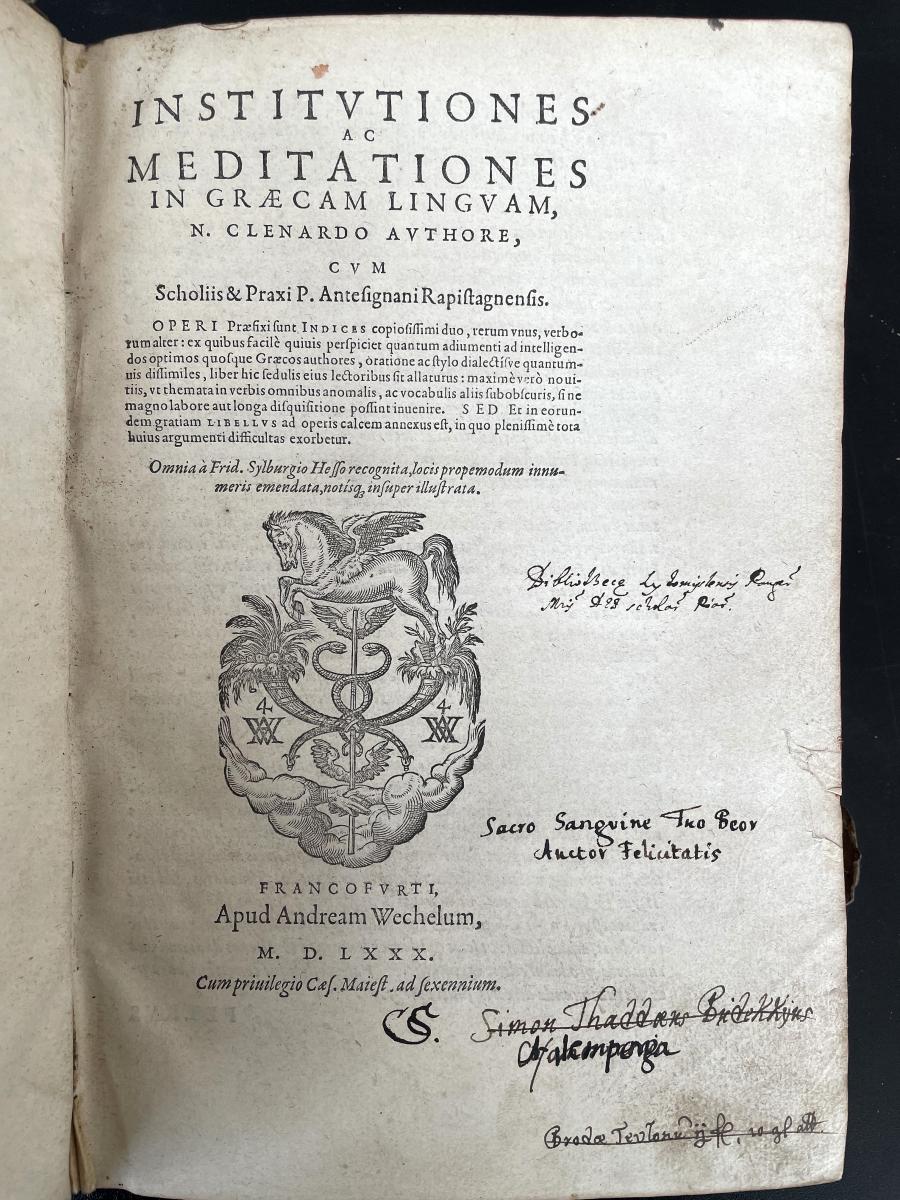 INSTITVTIONES
AC
MEDITATIONES
IN GRÆCAM LINGVAM,
N. CLENARDO AVTHORE,
CVM
Scholiis & Praxi P. Anteſignani Rapiſtagnenſis.
OPERI Præfixi ſunt INDICES copioſiſſimi duo, rerum vnus, verbo-
rum alter: ex quibus facilè quiuis perſpiciet quantum adiumenti ad intelligen-
dos optimos quoſque Græcos authores, oratione ac ſtylo dialectiſve quantum-
uis diſſimiles, liber hic ſedulis eius lectoribus ſit allaturus: maximè verò noui-
tiis, vt themata in verbis omnibus anomalis, ac vocabulis aliis ſubobſcuris, ſine
magno labore aut longa diſquiſitione poſſint inuenire. SED Et in eorun-
dem gratiam LIBELLVS ad operis calcem annexus eſt, in quo pleniſſimè tota
huius argumenti difficultas exorbetur.
Omnia à Frid. Sylburgio Heſſo recognita, locis propemodum innu-
meris emendata, notíſq, inſuper illuſtrata.
4 4
Sacro Sangvine Tuo Beor
Auctor Felicitatis
FRANCOFVRTI,
Apud Andream Wechelum,
M. D. LXXX.
Cum priuilegio Cæſ. Maieſt. ad ſexennium.
CS. Simon Thaddæus